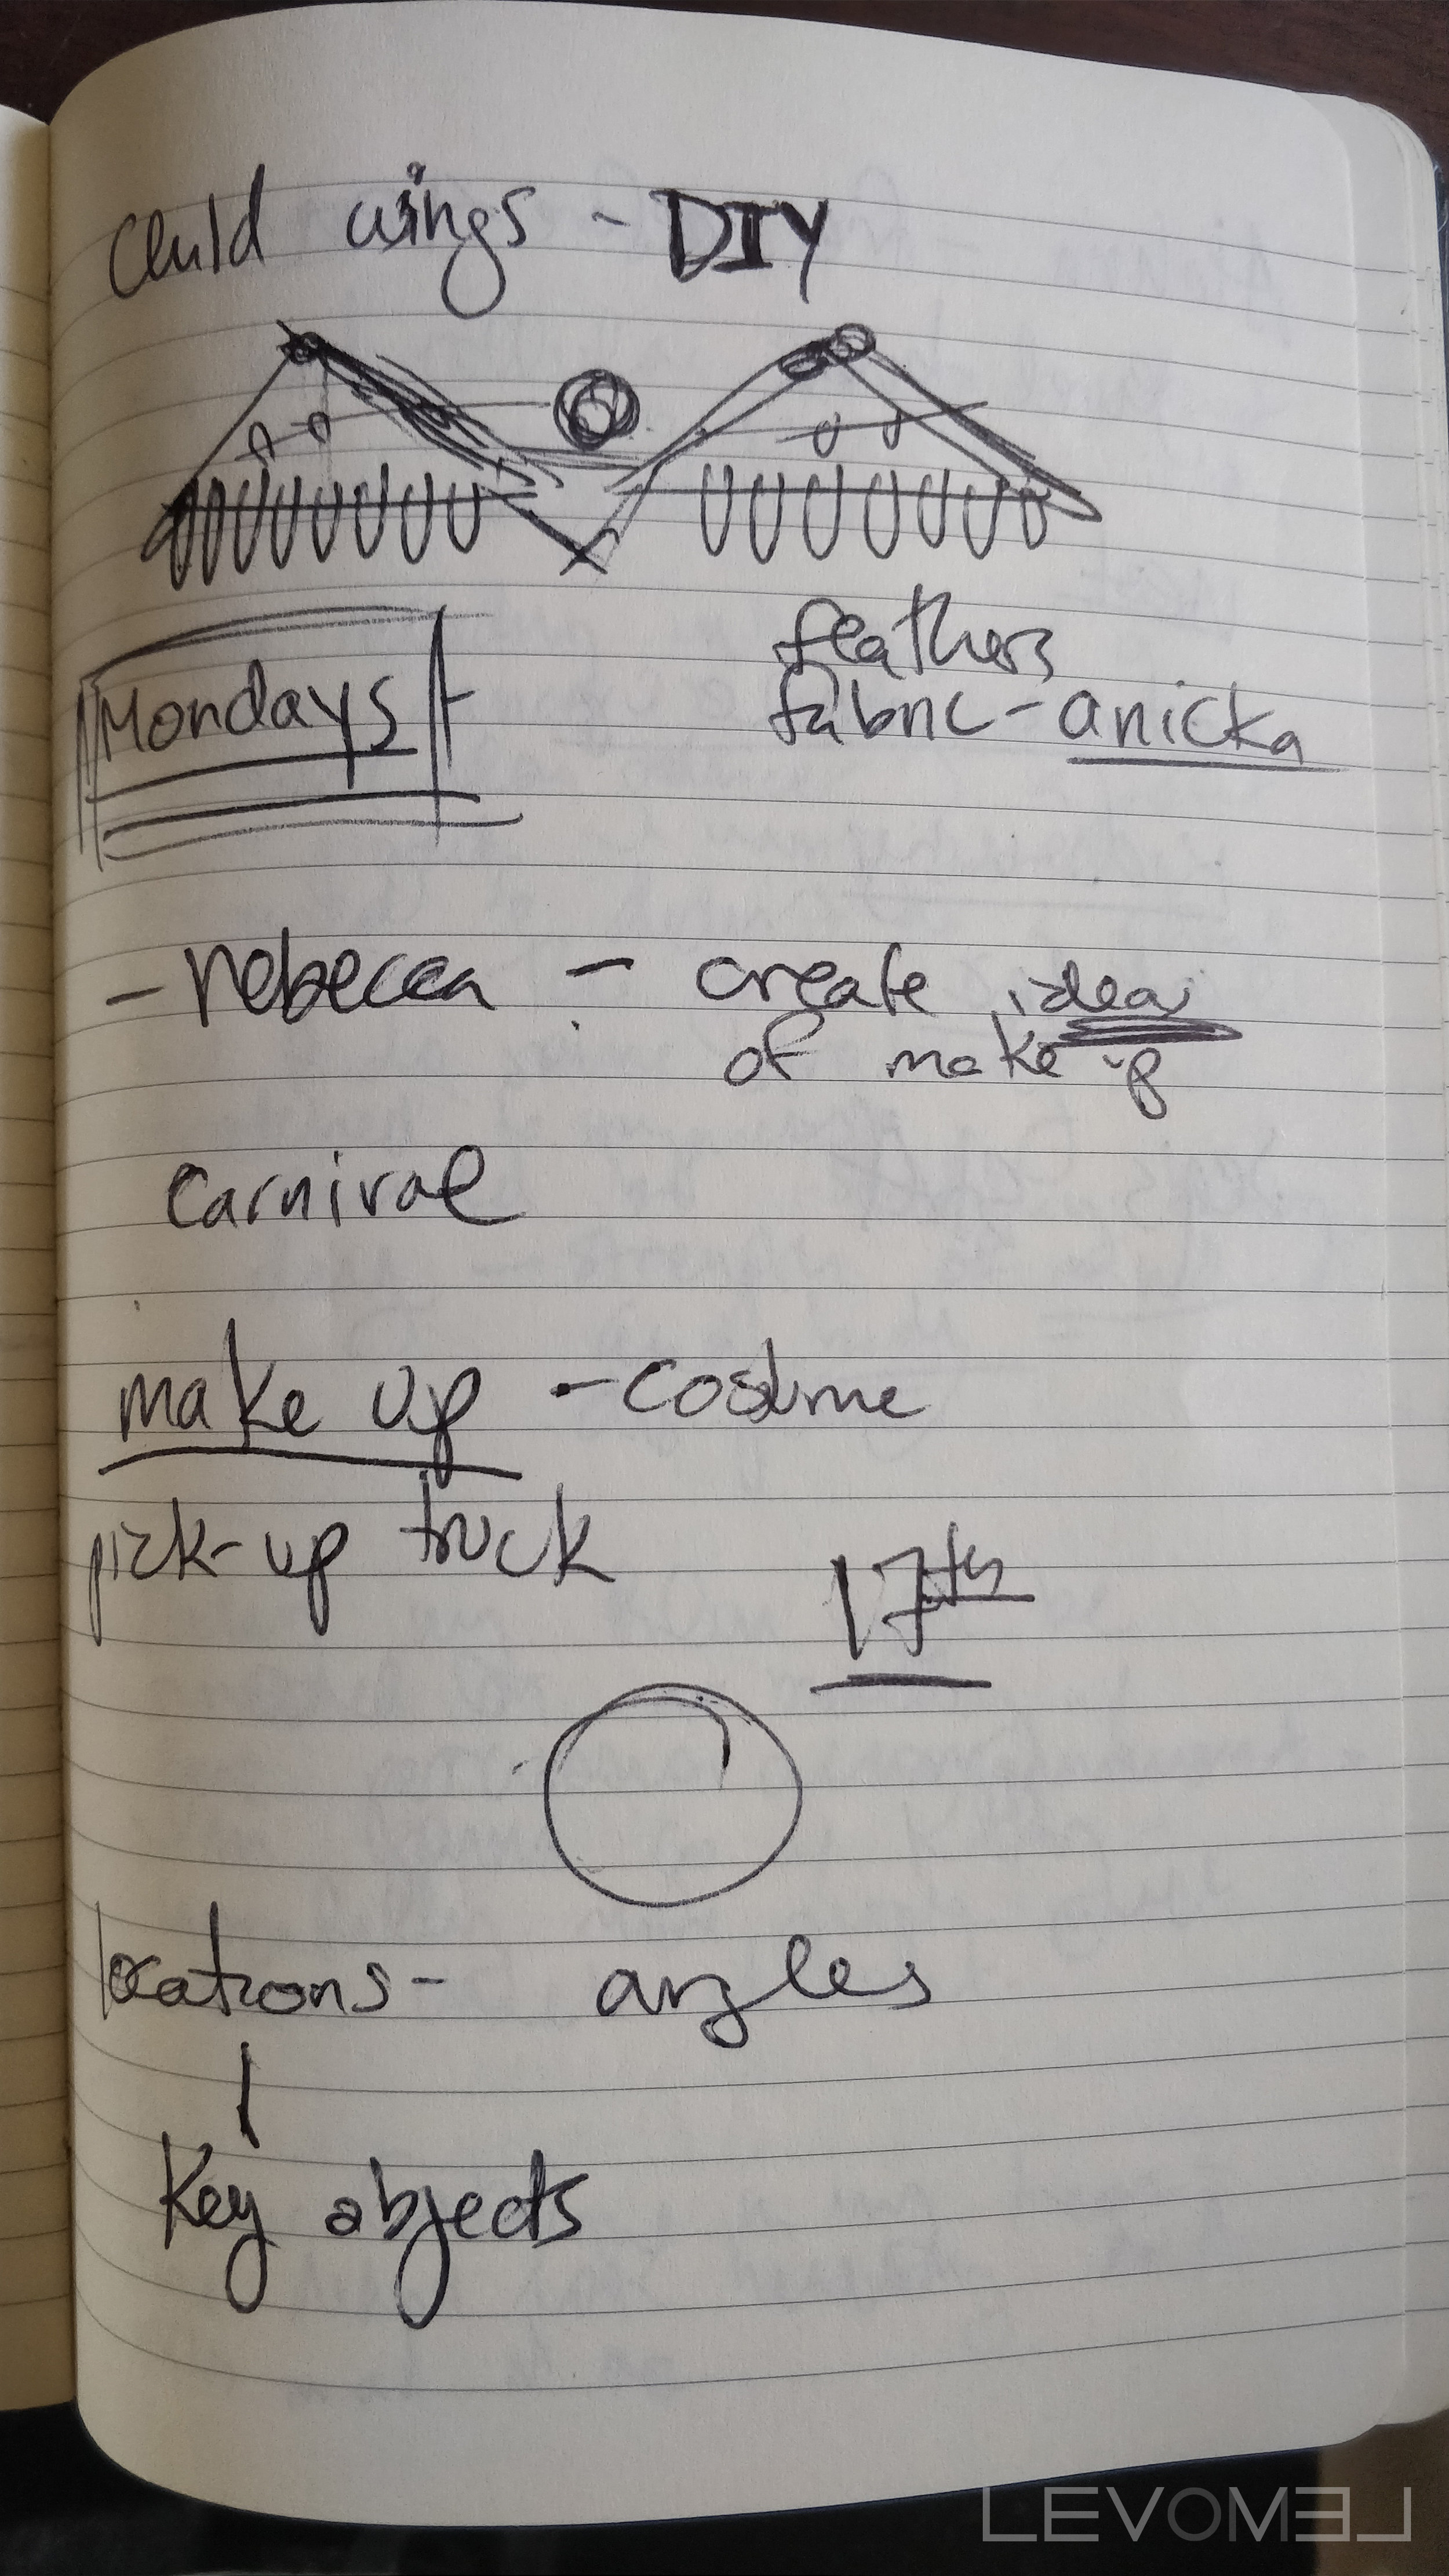 child wings - DIY
feathers
Mondays fabric - anicka
- rebecca - create idea
of make up
carnival
make up - costume
pick-up truck
17th
locations - angles
Key objects
LEVOMEL